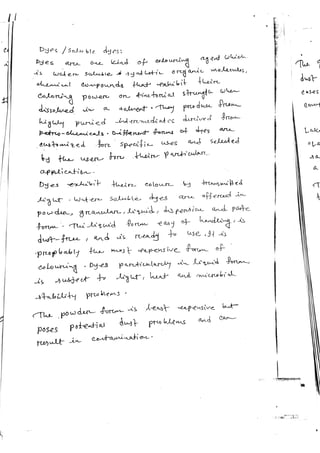 Dyes / Soluble dyes:
Dyes are one kind of colouring agent which
is water soluble & synthetic organic molecules,
chemical compounds that exhibit their
coloring power or tinctorial strength when
dissolved in a solvent. They produce from
highly puried intermediates derived from
petro-chemicals. Different forms of dyes are
customized for specific uses and selected
by the user for their particular
application.
Dyes exhibit their colour by transmitted
light. Water soluble dyes are offered in
powder, granular, liquid, dispersion and paste
form. The liquid form easy of handling, is
dust-free, and is ready to use. It is
probably the most expensive form of
colouring. Dyes particularly in liquid form,
is subject to light, heat and microbial
stability problems.
The powder form is least expensive but
poses potential dust problems and can
result in contamination.
The
dust
cases